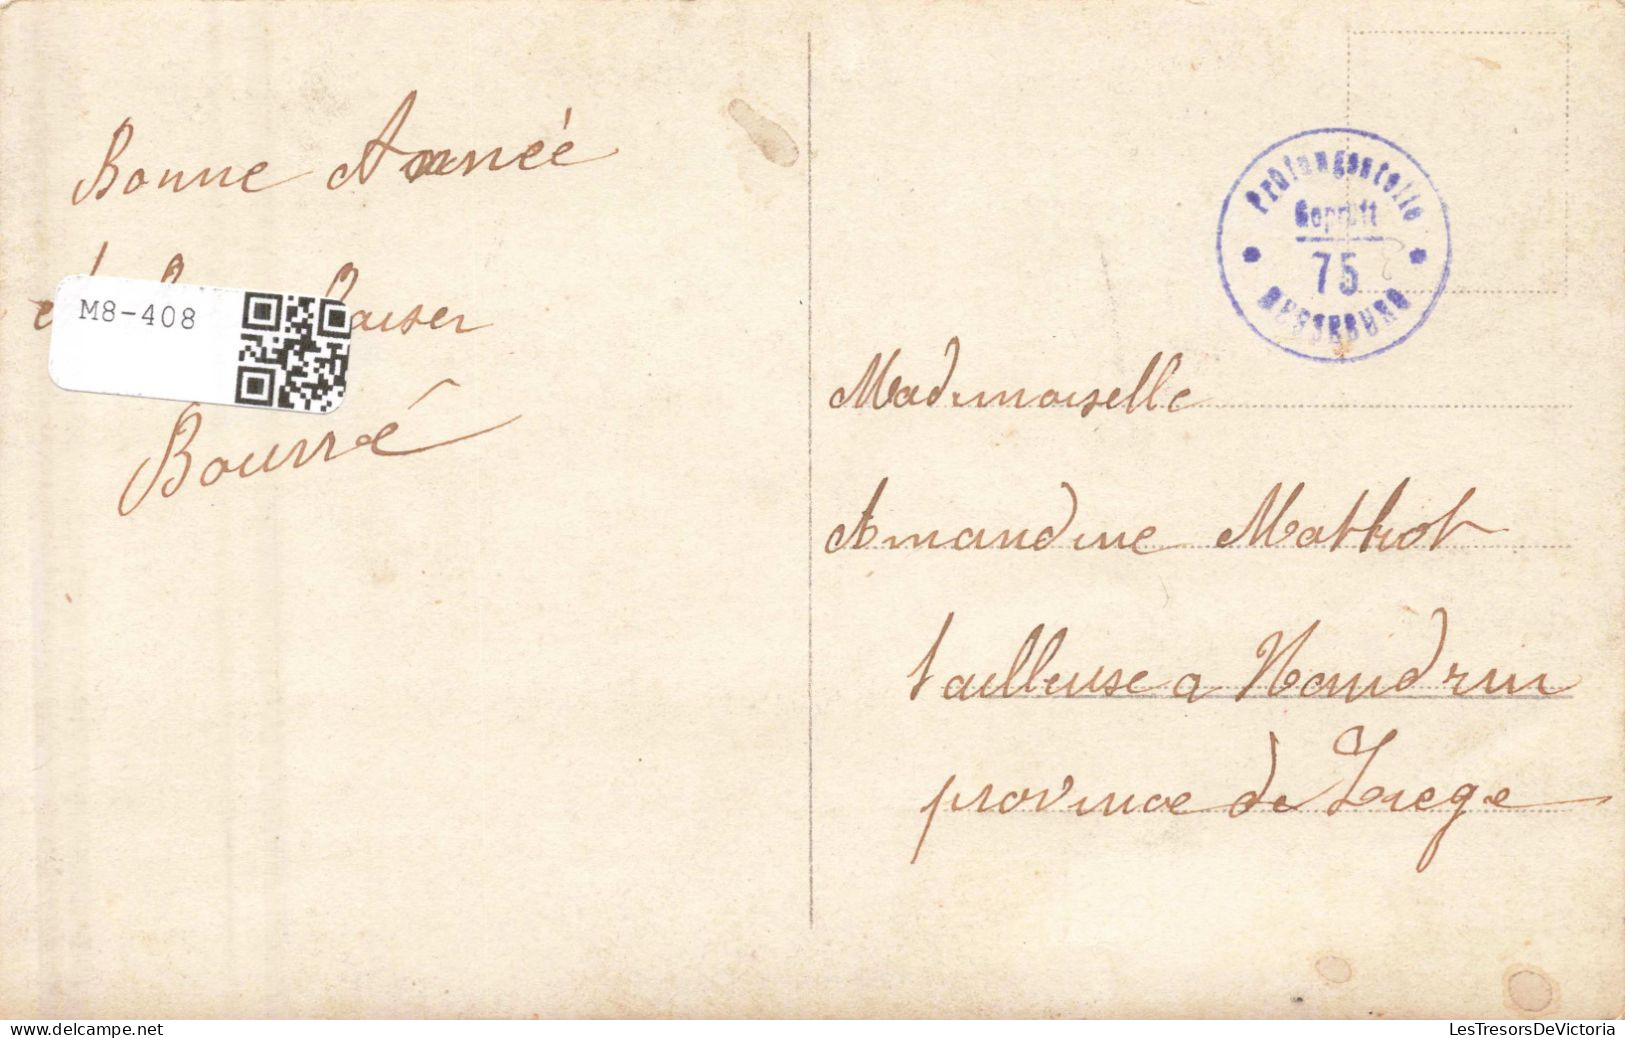 Bonne Année
Baiser
M8-408
Bourré
Prüfungsstelle
Geprüft
75
Mademoiselle
Amandine Mathot
tailleuse a Nandrin
province de Liege
delcampe.net
LesTresorsDeVictoria